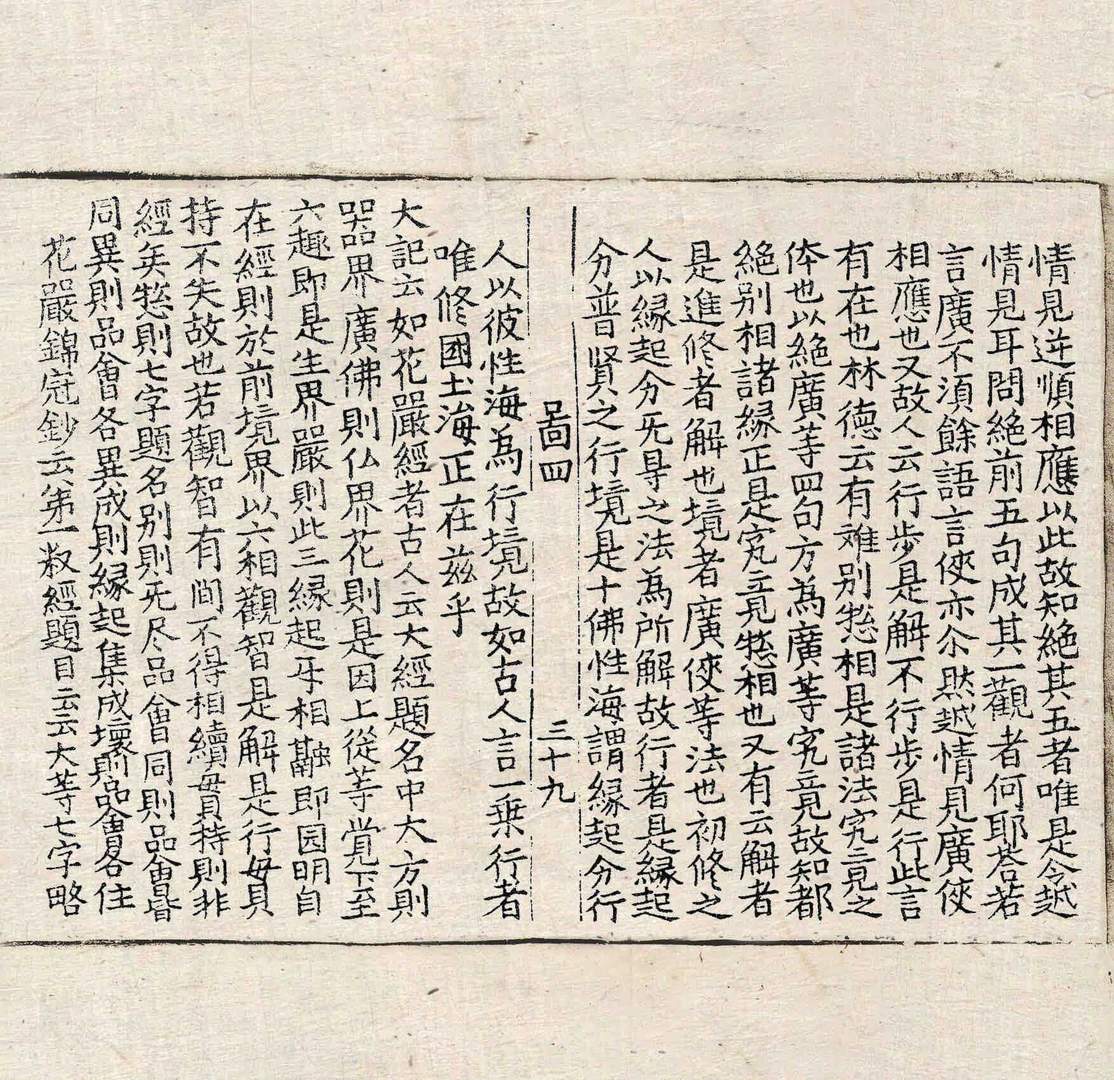 情見逆順相應以此故知絶其五者唯是令越
情見耳問絶前五句成其一觀者何耶荅若
言廣不須餘語言俠亦尒然越情見廣俠
相應也又故人云行步是解不行步是行此言
有在也林德云有难别惣相是諸法究竟之
体也以絶廣等四句方為廣等究竟故知都
絶别相諸緣正是究竟惣相也又有云解者
是進修者解也境者廣俠等法也初修之
人以緣起分旡㝵之法為所解故行者是緣起
分普賢之行境是十佛性海謂緣起分行
啚四 三十九
人以彼性海為行境故如古人言一乗行者
唯修國土海正在兹乎
大記云如花嚴經者古人云大經題名中大方則
器界廣佛則仏界花則是因上從等覚下至
六趣即是生界嚴則此三緣起牙相融即园明自
在經則於前境界以六相觀智是解是行毋貟
持不失故也若觀智有間不得相續毋貟持則非
經矣惣則七字題名别則旡尽品會同則品會昏
同異則品會各異成則緣起集成壞則品會各住
花嚴錦冠鈔云第一釈經題目云云大等七字略